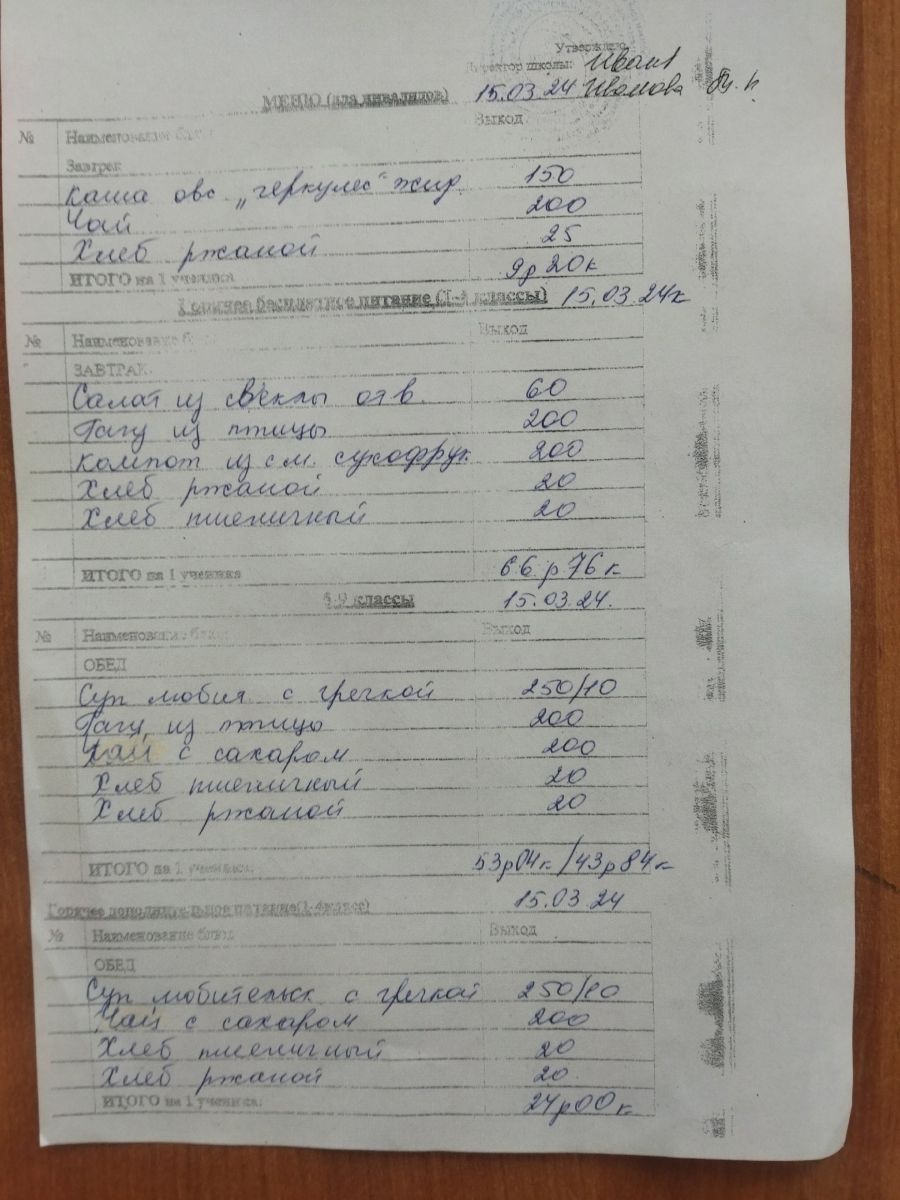 Утверждаю
Директор школы:
МЕНЮ (для инвалидов) 15.03.24 Иванова
№ Наименование блюд Выход
Завтрак
Каша овс „геркулес" жид. 150
Чай 200
Хлеб ржаной 25
ИТОГО на 1 ученика 9р 20к
Горячее бесплатное питание (1-4 классы) 15.03.24г
№ Наименование блюд Выход
ЗАВТРАК
Салат из свеклы отв. 60
Рагу из птицы 200
Компот из см. сухофрук 200
Хлеб ржаной 20
Хлеб пшеничный 20
ИТОГО на 1 ученика 66 р 76 к
5-9 классы 15.03.24.
№ Наименование блюд Выход
ОБЕД
Суп любия с гречкой 250/10
Рагу из птицы 200
Чай с сахаром 200
Хлеб пшеничный 20
Хлеб ржаной 20
ИТОГО на 1 ученика. 53р04к /43р84к
15.03.24
Горячее дополнительное питание(1-4класс)
№ Наименование блюд Выход
ОБЕД
Суп любительск с гречкой 250/10
Чай с сахаром 200
Хлеб пшеничный 20
Хлеб ржаной 20
ИТОГО на 1 ученика. р00к